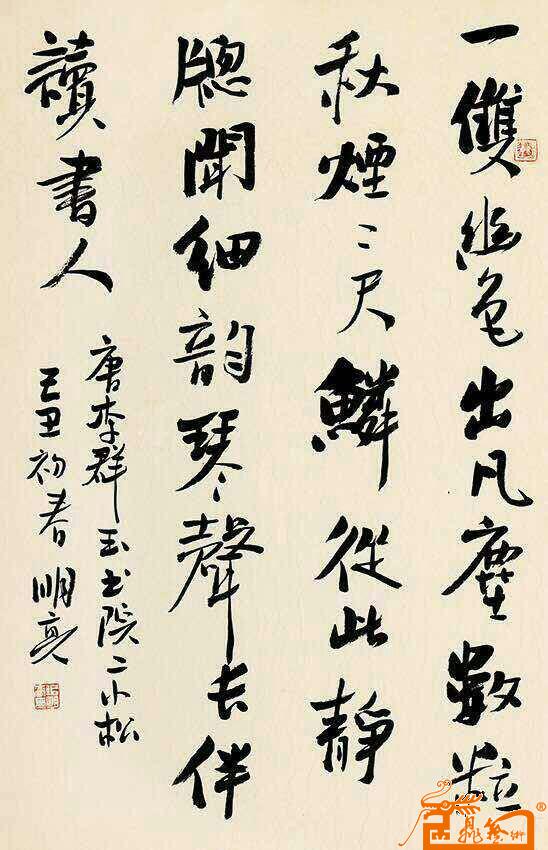 一雙幽色出凡塵數粒
秋煙二尺鱗從此靜
牕聞細韻琴聲長伴
讀書人
唐李群玉书院二小松
丑初春明亮